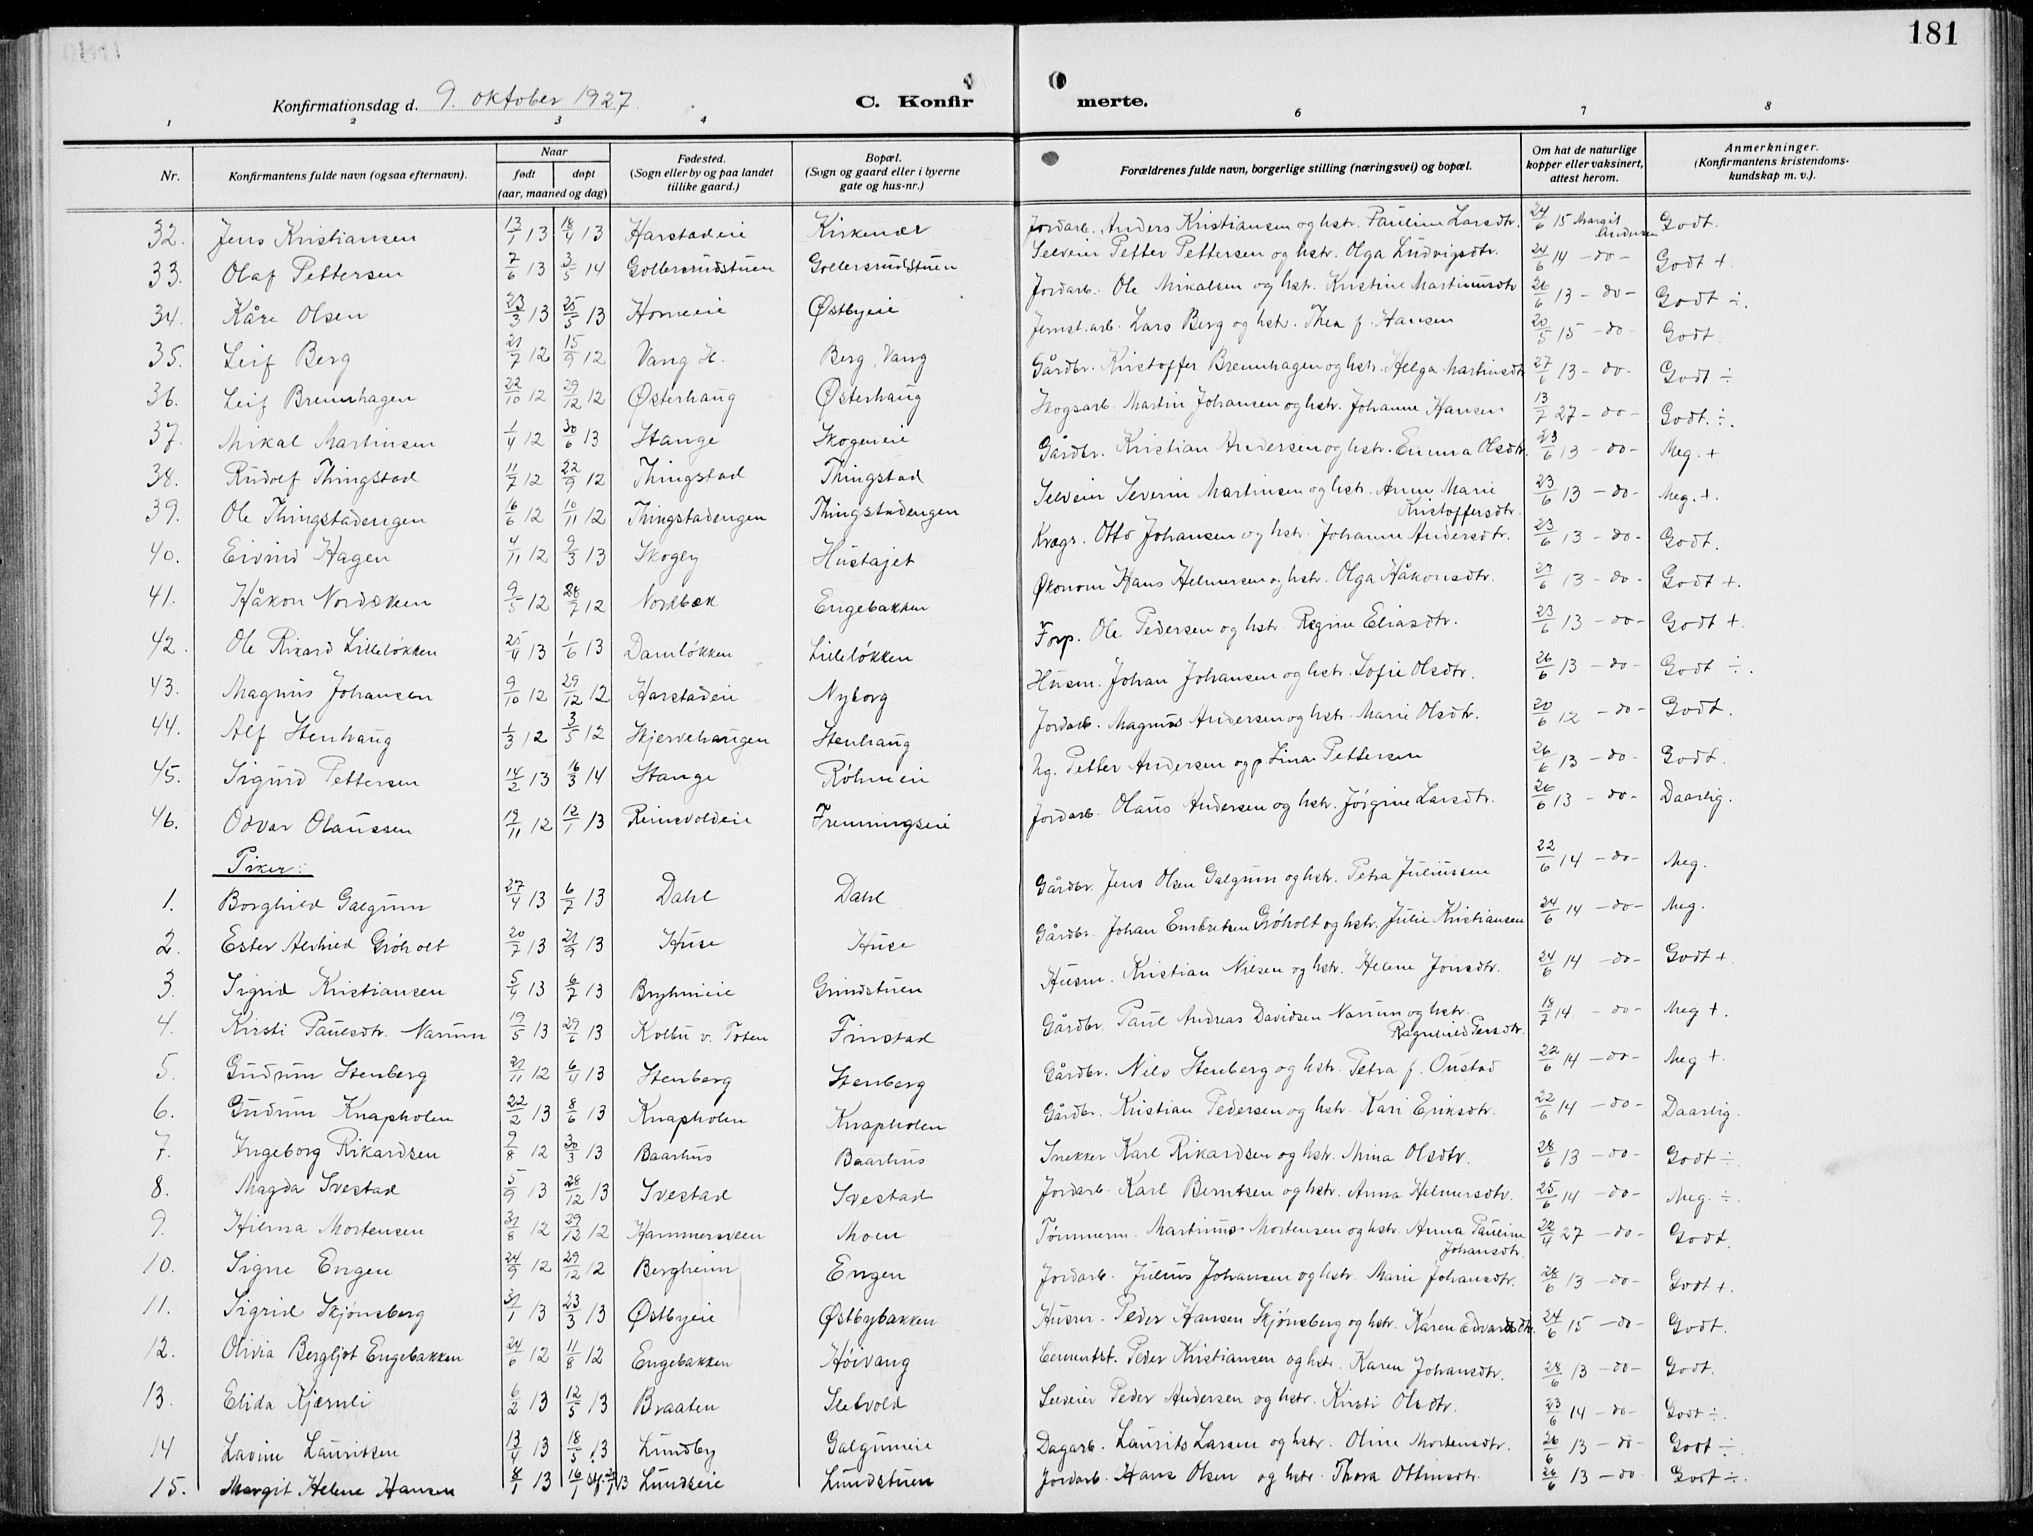 181
Konfirmationsdag d. 9. oktober 1927.
C. Konfirmerte.
1 2 3 4 6 7 8
Nr. Konfirmantens fulde navn (ogsaa efternavn). Naar født døpt (aar, maaned og dag) Fødested. (Sogn eller by og paa landet tillike gaard.) Bopæl. (Sogn og gaard eller i byerne gate og hus-nr.) Forældrenes fulde navn, borgerlige stilling (næringsvei) og bopæl. Om hat de naturlige kopper eller vaksinert, attest herom. Anmerkninger. (Konfirmantens kristendoms- kundskap m. v.).
32. Jens Kristiansen 13/1 13 18/4 13 Harstadeie Kirkenær Jordarb. Anders Kristiansen og hstr. Pauline Larsdtr. 24/6 15 Margit Andersen Godt.
33. Olaf Pettersen 7/6 13 3/5 14 Gollersrudstuen Gollersrudstuen Selveier Petter Pettersen og hstr. Olga Ludvigsdtr. 24/6 14 - do - Godt +
34. Kåre Olsen 23/3 13 25/5 13 Horneie Østbyeie Jordarb. Ole Mikalsen og hstr. Kristine Martinusdtr 26/6 13 - do - Godt ÷.
35. Leif Berg 21/7 12 15/9 12 Vang H. Berg, Vang Jernst.arb. Lars Berg og hstr. Thea f. Hansen 20/5 15 - do - Godt
36. Leif Brennhagen 22/10 12 29/12 12 Østerhaug Østerhaug Gårdbr. Kristoffer Brennhagen og hstr. Helga Martinsdtr 27/6 13 - do - Godt ÷
37. Mikal Martinsen 1/4 12 30/6 13 Stange Skogeneie Skogsarb. Martin Johansen og hstr. Johanne Hansen 13/7 27 - do - Godt. ÷.
38. Rudolf Thingstad 11/7 12 22/9 12 Thingstad Thingstad Gårdbr. Kristian Andersen og hstr. Emma Olsdtr. 23/6 13 - do - Meg. +
39. Ole Thingstadengen 16/6 12 10/11 12 Thingstadengen Thingstadengen Selveier Severin Martinsen og hstr. Anne Marie Kristoffersdtr. 23/6 13 - do - Meg. +.
40. Eivind Hagen 4/11 12 9/3 13 Skogey Hustajet Krags. Otto Johansen og hstr. Johanne Andersdtr. 23/6 13 - do - Godt.
41. Håkon Nordsveen 9/5 12 28/7 12 Nordbæk Engebakken Økonom Hans Helmersen og hstr. Olga Håkonsdtr. 23/6 13 - do - Godt +.
42. Ole Rikard Lilleløkken 25/4 13 1/6 13 Damløkken Lilleløkken Forp. Ole Pedersen og hstr. Regine Eliasdtr. 23/6 13 - do - Godt +
43. Magnus Johansen 9/10 12 29/12 12 Harstadeie Nyborg Husm. Johan Johansen og hstr. Sofie Olsdtr. 26/6 13 - do - Godt ÷.
44. Alf Stenhaug 1/3 12 3/5 12 Skjervehaugen Stenhaug Jordarb. Magnus Andersen og hstr. Marie Olsdtr. 20/6 12 - do - Godt.
45. Sigurd Pettersen 14/2 13 16/3 14 Stange Røhneeie Ug. Petter Andersen og p. Lina Pettersen 26/6 13 - do - Godt.
46. Odvar Olaussen 19/11 12 12/1 13 Reinsvoldeie Frenningseie Jordarb. Olaus Andersen og hstr. Jørgine Larsdtr. 26/6 13 - do - Daarlig.
Piker:
1. Borghild Galgum 27/4 13 6/7 13 Dahl Dahl Gårdbr. Jens Olsen Galgum og hstr. Petra Juliussen 22/6 14 - do - Meg.
2. Ester Alvhied Grøholt 20/7 13 21/9 13 Huse Huse Gårdbr. Johan Embretsen Grøholt og hstr. Julie Kristiansen 24/6 14 - do - Meg.
3. Sigrid Kristiansen 5/4 13 6/7 13 Bryhnieie Grindstuen Husm. Kristian Nilsen og hstr. Helene Jonsdtr. 24/6 14 - do - Godt +.
4. Kirsti Paulsdtr. Narum 19/5 13 29/6 13 Kolbu v. Toten Finstad Gårdbr. Paul Andreas Davidsen Narum og hstr. Ragnhild Persdtr. 18/7 14 - do - Meg +.
5. Gudrun Stenberg 21/11 12 6/4 13 Stenberg Stenberg Gårdbr. Nils Stenberg og hstr. Petra f. Onstad 22/6 14 - do - Meg +
6. Gudrun Knapholen 22/2 13 8/6 13 Knapholen Knapholen Gårdbr. Kristian Pedersen og hstr. Kari Eriksdtr. 22/6 14 - do - Daarlig.
7. Ingeborg Rikardsen 9/8 12 30/3 13 Baarhus Baarhus Snekker Karl Rikardsen og hstr. Mina Olsdtr. 28/6 13 - do - Godt ÷.
8. Magda Svestad 5/9 13 28/12 13 Svestad Svestad Jordarb. Karl Berntsen og hstr. Anna Helmersdtr. 25/6 14 - do - Meg. ÷.
9. Hilma Mortensen 31/8 12 29/12 12 Hammersveen Moen Tømmerm. Martinus Mortensen og hstr. Anna Pauline Johansdtr. 22/4 27 - do - Godt.
10. Signe Engen 24/9 12 29/12 12 Bergheim Engen Jordarb. Julius Johansen og hstr. Marie Johansdtr. 28/6 13 - do - Godt +.
11. Sigrid Skjønsberg 31/1 13 23/3 13 Østbyeie Østbybakken Husm. Peder Hansen Skjønsberg og hstr. Karen Edvardsdtr. 24/6 15 - do - Godt.
12. Olivia Bergljot Engebakken 24/6 12 11/8 12 Engebakken Høivang Cementst. Peder Kristiansen og hstr. Karen Johansdtr. 28/6 13 - do - Godt.
13. Elida Kjærnli 6/2 13 12/5 13 Braaten Sletvold Selveier Peder Andersen og hstr. Kirsti Olsdtr. 23/6 14 - do - Godt ÷.
14 Lavine Lauritsen 13/4 13 18/5 13 Lundby Galgumeie Dagarb. Laurits Larsen og hstr. Oline Mortensdtr. 26/6 13 - do - Godt ÷
15. Margit Helene Hansen 8/1 13 16/1 13 Lundseie Lundstuen Jordarb. Hans Olsen og hstr. Thora Ottinsdtr. 26/6 13 - do Godt ÷.